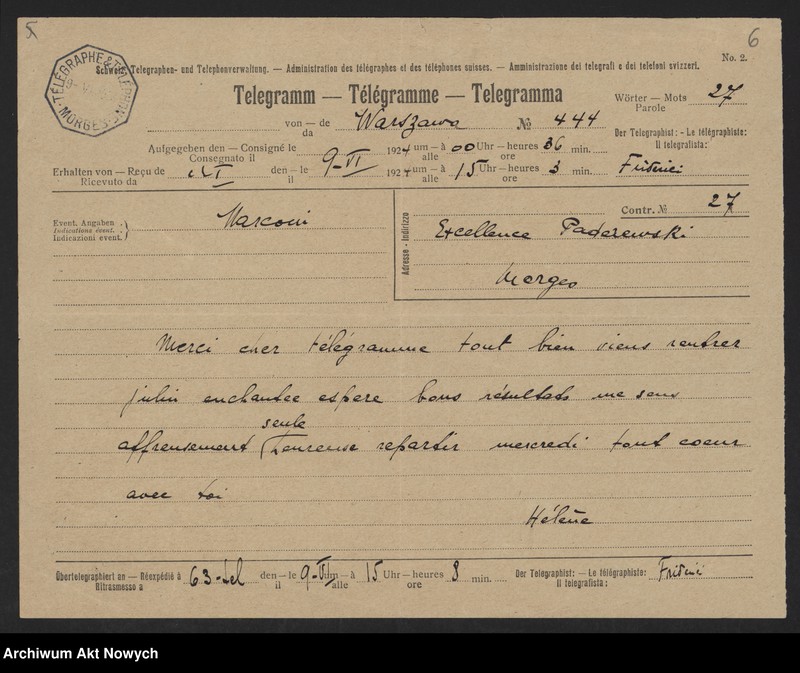 5
6
No. 2.
TÉLÉGRAPHE & TÉLÉPHONE
MORGES
Schweiz. Telegraphen- und Telephonverwaltung. — Administration des télégraphes et des téléphones suisses. — Amministrazione dei telegrafi e dei telefoni svizzeri.
Telegramm — Télégramme — Telegramma
Wörter — Mots 27
Parole
von — de Warszawa № 444
da
Der Telegraphist: - Le télégraphiste:
Il telegrafista:
Aufgegeben den — Consigné le 9-VI 1924 um — à 00 Uhr — heures 36 min.
Consegnato il alle ore
Erhalten von — Reçu de den — le 192 um — à 15 Uhr — heures 3 min. Friderici
Ricevuto da il alle ore
Event. Angaben
Indications évent.
Indicazioni event.
Marconi
Contr. № 27
Adresse - Indirizzo
Excellence Paderewski
Morges
Merci cher télégramme tout bien viens rentrer
julin enchantee espere bons résultats me sens
seule
affreusement heureuse repartir mercredi tout coeur
avec toi
Hélène
Übertelegraphiert an — Réexpédié à 63-tel den — le 9-VI um — à 15 Uhr — heures 8 min. Der Telegraphist: — Le télégraphiste: Friderici
Ritrasmesso a il alle ore Il telegrafista:
Archiwum Akt Nowych